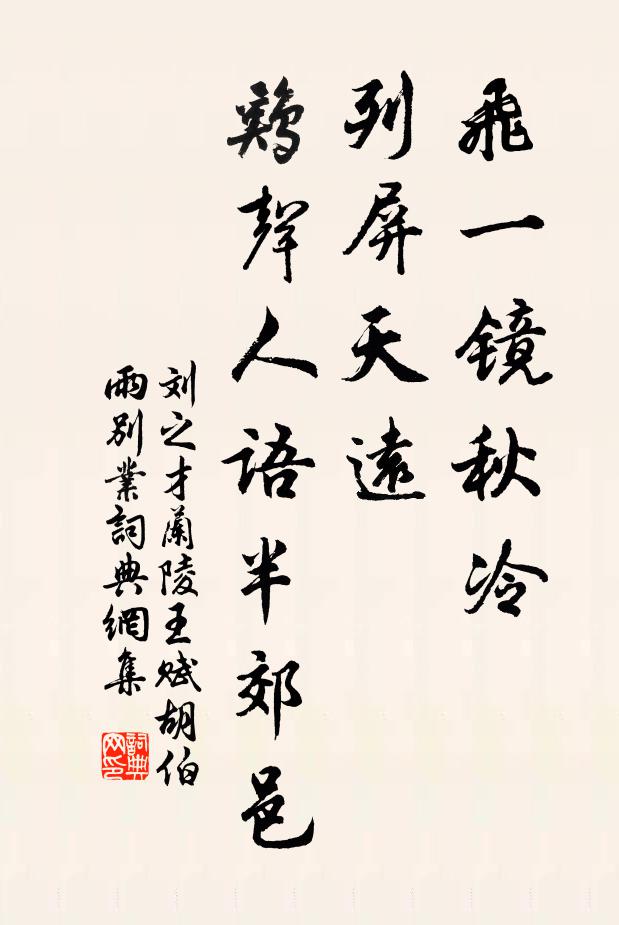 飛一镜秋冷
列屏天遠
鷄聲人语半郊邑
刘之才蘭陵王赋胡伯
雨别業詞典網集
詞典网印